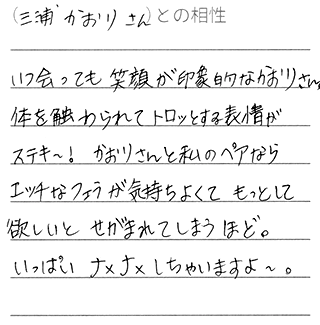 (三浦 かおり さん)との相性
いつ会っても 笑顔が印象的なかおりさん
体を触わられてトロッとする表情が
ステキ〜! かおりさんと私のペアなら
エッチなフェラが気持ちよくて もっとして
欲しいと せがまれてしまうほど。
いっぱい ナメナメしちゃいますよ〜。